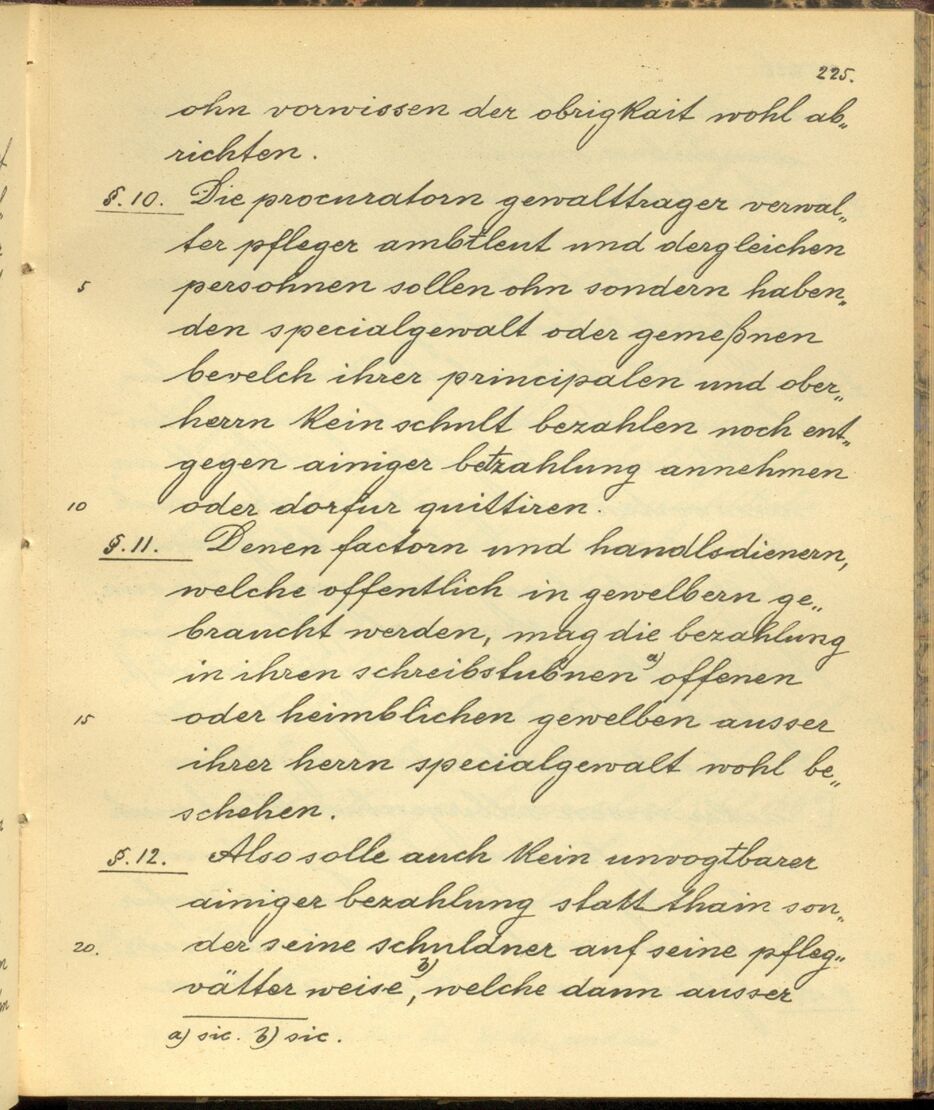 225.
ohn vorwissen der obrigkait wohl ab„
richten.
§. 10. Die procuratorn gewalttrager verwal„
ter pfleger ambtleut und dergleichen
5 persohnen sollen ohn sondern haben„
den specialgewalt oder gemeßnen
bevelch ihrer principalen und ober„
herrn kein schult bezahlen noch ent„
gegen ainiger bezahlung annehmen
10 oder dorfür quittiren.
§. 11. Denen factorn und handlsdienern,
welche offentlich in gewelbern ge„
braucht werden, mag die bezahlung
in ihren schreibstubnen a) offenen
15 oder heimblichen gewelben ausser
ihrer herrn specialgewalt wohl be„
schehen.
§. 12. Also solle auch kein unvogtbarer
ainiger bezahlung statt thain son„
20. der seine schuldner auf seine pfleg„
vätter weise b), welche dann ausser
a) sic. b) sic.